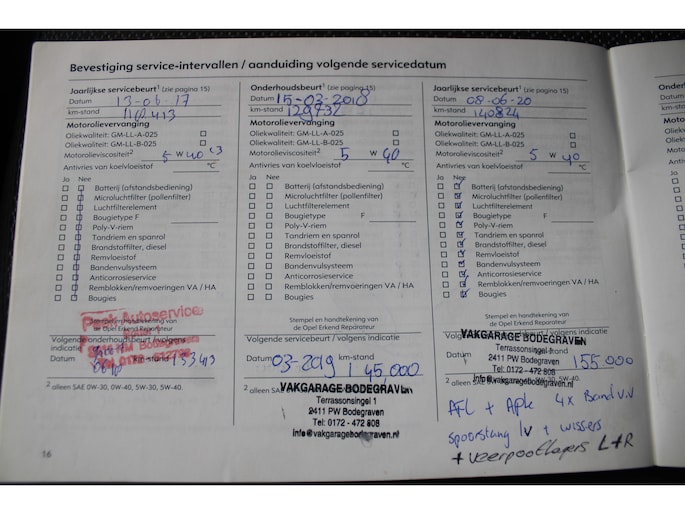 Bevestiging service-intervallen / aanduiding volgende servicedatum
Jaarlijkse servicebeurt¹ (zie pagina 15)
Datum 13-06-17
km-stand 110413
Motorolievervanging
Oliekwaliteit: GM-LL-A-025
Oliekwaliteit: GM-LL-B-025
Motorolieviscositeit² 5 W 40 C3
Antivries van koelvloeistof °C
Ja Nee
Batterij (afstandsbediening)
Microluchtfilter (pollenfilter)
Luchtfilterelement
Bougietype F
Poly-V-riem
Tandriem en spanrol
Brandstoffilter, diesel
Remvloeistof
Bandenvulsysteem
Anticorrosieservice
Remblokken/remvoeringen VA / HA
Bougies
Stempel en handtekening van
de Opel Erkend Reparateur
Autoservice
Bodegraven
Volgende onderhoudsbeurt / volgens
indicatie
Datum km-stand 133413
² alleen SAE 0W-30, 0W-40, 5W-30, 5W-40.
16
Onderhoudsbeurt¹ (zie pagina 15)
Datum 15-03-2018
km-stand 129732
Motorolievervanging
Oliekwaliteit: GM-LL-A-025
Oliekwaliteit: GM-LL-B-025
Motorolieviscositeit² 5 W 40
Antivries van koelvloeistof °C
Ja Nee
Batterij (afstandsbediening)
Microluchtfilter (pollenfilter)
Luchtfilterelement
Bougietype F
Poly-V-riem
Tandriem en spanrol
Brandstoffilter, diesel
Remvloeistof
Bandenvulsysteem
Anticorrosieservice
Remblokken/remvoeringen VA / HA
Bougies
Stempel en handtekening van
de Opel Erkend Reparateur
Volgende servicebeurt / volgens indicatie
Datum 03-2019 km-stand 145,000
² alleen SAE
VAKGARAGE BODEGRAVEN
Terrassonsingel 1
2411 PW Bodegraven
Tel: 0172 - 472 808
info@vakgaragebodegraven.nl
Jaarlijkse servicebeurt¹ (zie pagina 15)
Datum 08-06-20
km-stand 140824
Motorolievervanging
Oliekwaliteit: GM-LL-A-025
Oliekwaliteit: GM-LL-B-025
Motorolieviscositeit² 5 W 40
Antivries van koelvloeistof °C
Ja Nee
Batterij (afstandsbediening)
Microluchtfilter (pollenfilter)
Luchtfilterelement
Bougietype F
Poly-V-riem
Tandriem en spanrol
Brandstoffilter, diesel
Remvloeistof
Bandenvulsysteem
Anticorrosieservice
Remblokken/remvoeringen VA / HA
Bougies
Stempel en handtekening van
de Opel Erkend Reparateur
VAKGARAGE BODEGRAVEN
Terrassonsingel 1
2411 PW Bodegraven
Tel: 0172 - 472 808
info@vakgaragebodegraven.nl
Datum 155 000
² alleen SAE 5W-40.
AFL + Apk 4x Band V.V
spoorstang lv + wissers
+ veerpootlagers L+R